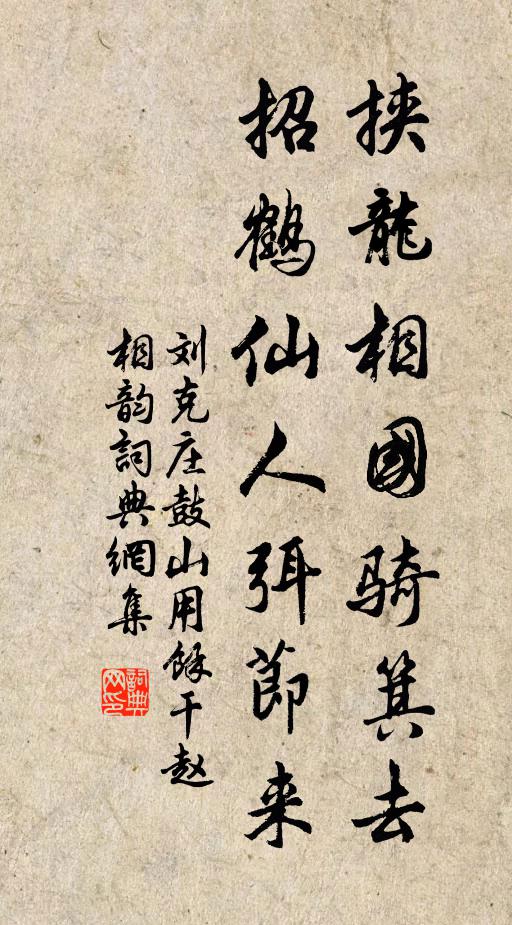 挟龍相國骑箕去
招鶴仙人弭節来
刘克庄鼓山用餘干赵
相韵詞典網集
詞典
网印